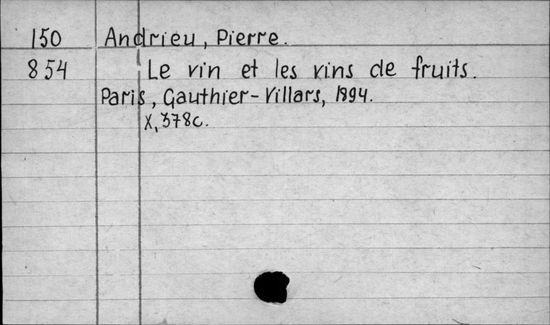 150 Andrieu, Pierre.
854 Le vin et les vins de fruits.
Paris, Gauthier-Villars, 1894.
X, 378c.